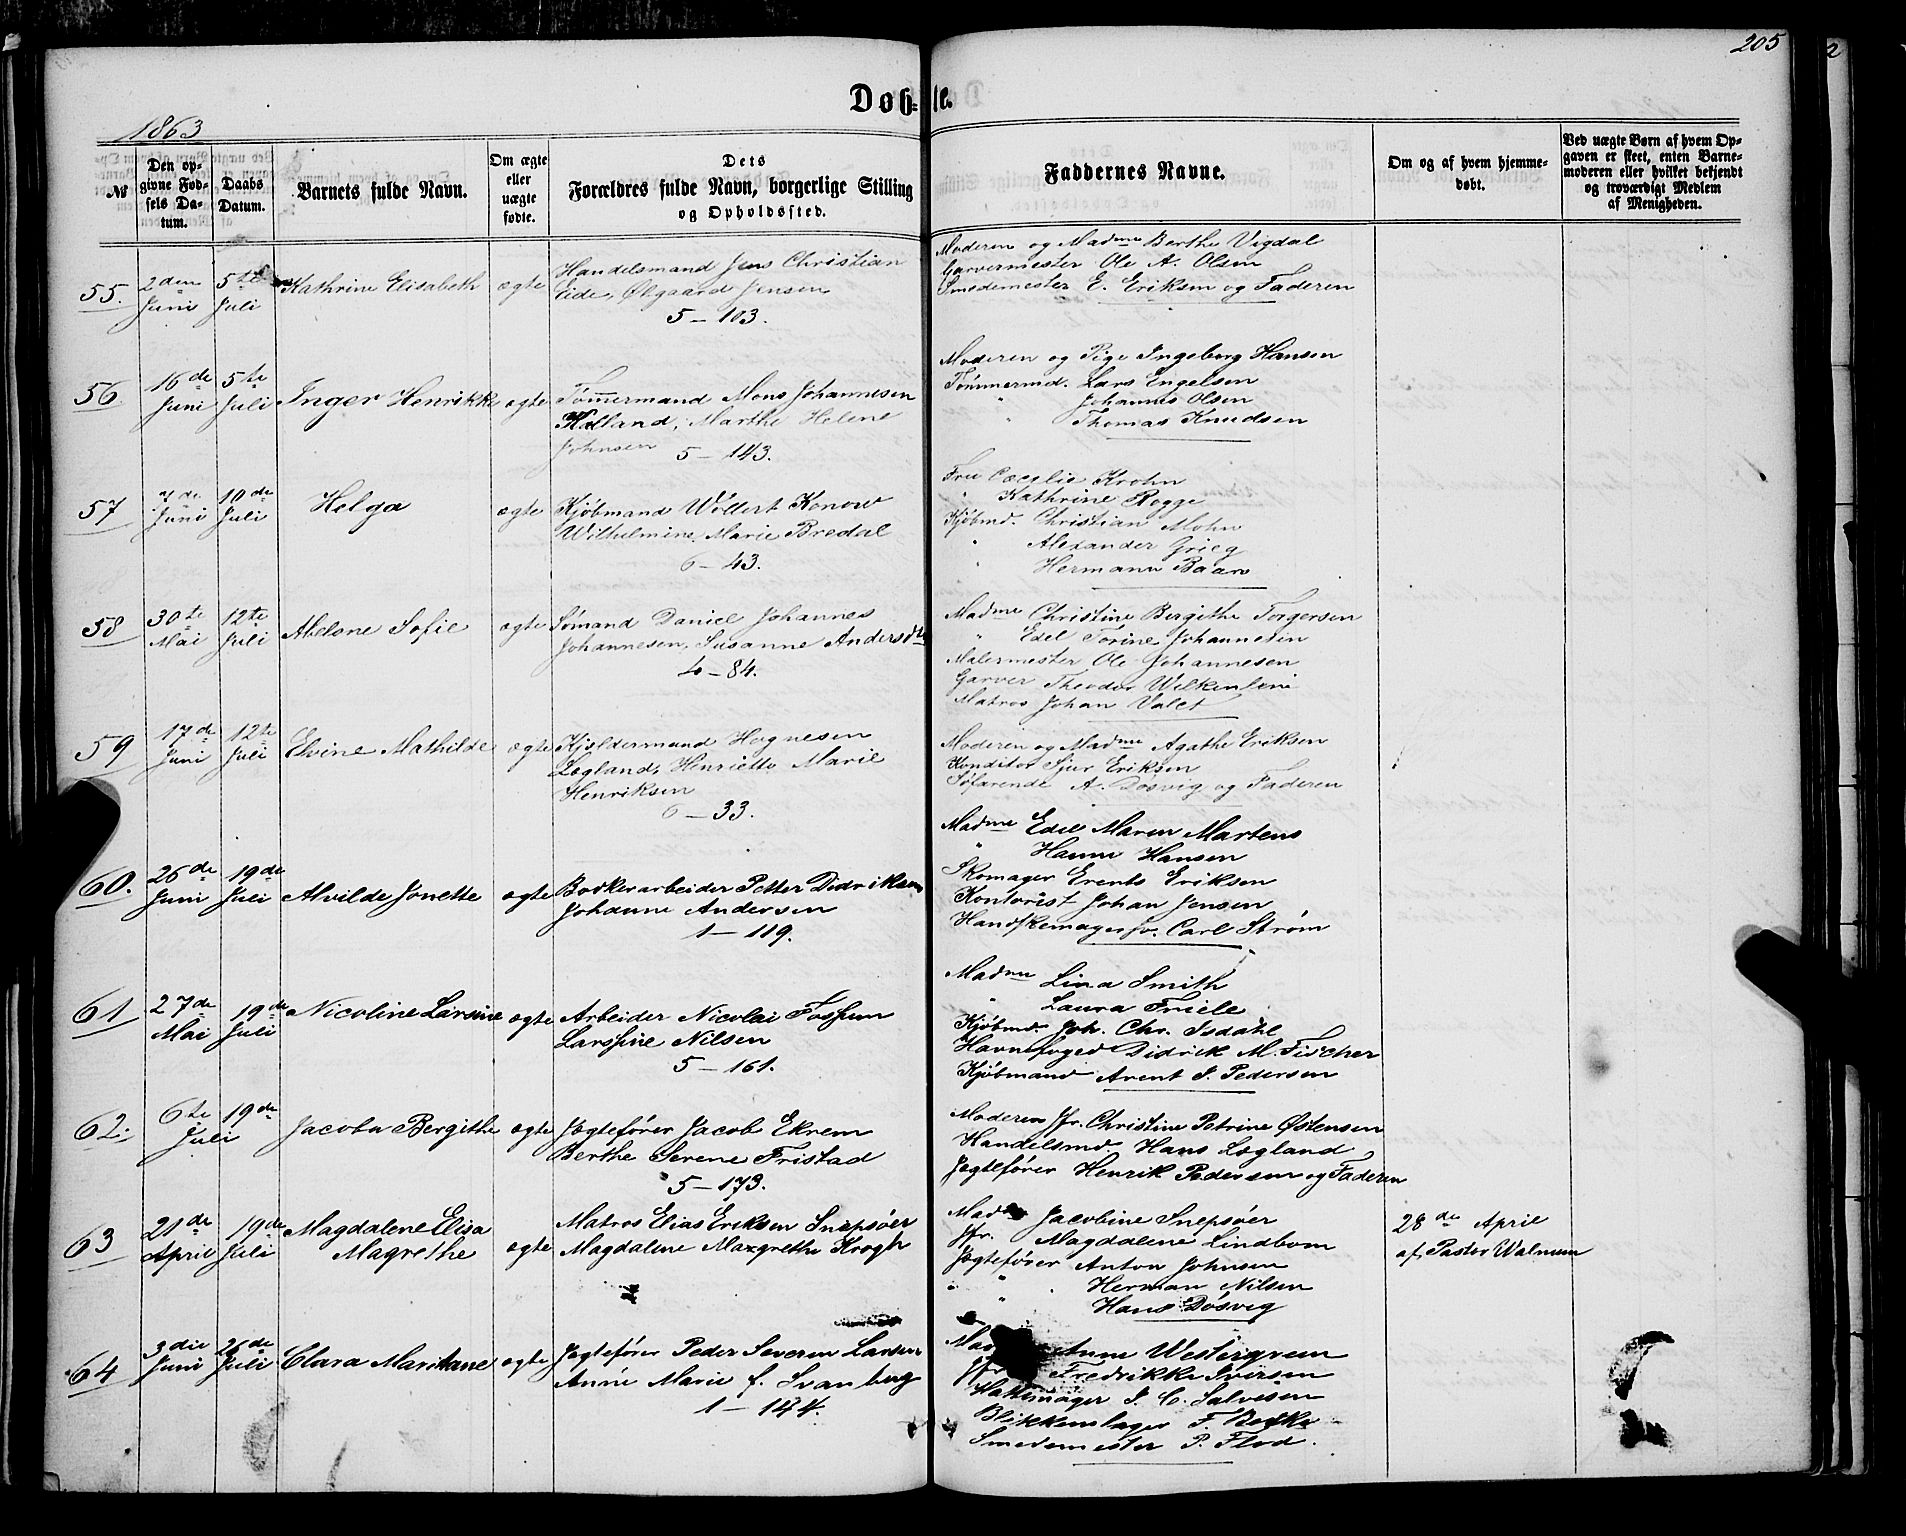 205
2
Døb=te.
1863
№
Den op-
givne Fød-
sels Da-
tum.
Daabs
Datum.
Barnets fulde Navn.
Om ægte
eller
uægte
fødte.
Dets
Forældres fulde Navn, borgerlige Stilling
og Opholdssted.
Faddernes Navne.
Om og af hvem hjemme-
døbt.
Ved uægte Børn af hvem Op-
gaven er skeet, enten Barne-
moderen eller hvilket bekjendt
og troværdigt Medlem
af Menigheden.
55.
2den
Juni
5te
Juli
Kathrine Elisabeth
ægte
Handelsmand Jens Christian
Eide, Jensen
5 - 103.
Moderen og Madme Berthe Vigdal
Garvermester Ole A. Olsen
Smedemester E. Eriksen og Faderen
56
16de
Juni
5te
Juli
Inger Henrikke
ægte
Tømmermand Mons Johannesen
Marthe Helene
Johnsen
5 - 143.
Moderen og Pige Ingeborg Hansen
Tømmermd. Lars Engelsen
" Johannes Olsen
" Thomas Knudsen
57
7de
Juni
10de
Juli
Helga
ægte
Kjøbmand Wollert Konow
Wilhelmine Marie Bredal
6 - 43.
Fru Cæcilie Krohn
" Kathrine Rogge
Kjøbmd. Christian Mohn
" Alexander Grieg
" Hermann Baars
58
30te
Mai
12te
Juli
Abelone Sofie
ægte
Sømand Daniel Johannes
Johannesen, Susanne Andersdtr
4 - 84.
Madme Christine Bergithe Torgersen
" Edel Torine Johannesen
Malermester Ole Johannesen
Garver Theodor
Matros Johan Valet
59
17de
Juni
12te
Juli
Elvine Mathilde
ægte
Kjeldermand Hognesen
Løgland, Henriette Marie
Henriksen
6 - 33.
Moderen og Madme Agathe Eriksen
Konditor Sjur Eriksen
Søfarende A. Døsvig og Faderen
60.
26de
Juni
19de
Juli
Alvilde Jonette
ægte
Bødkerarbeider Petter Didriksen
Johanne Andersen
1 - 119.
Madme Edel Maren Martens
" Hanne Hansen
Skomager Erents Eriksen
Kontorist Johan Jensen
Handskemagersv. Carl Strøm
61
27de
Mai
19de
Juli
Nicoline Larsine
ægte
Arbeider Nicolai Fossum
Larssine Nilsen
5 - 161.
Madme Lina Smith
" Laura Friele
Kjøbmd. Joh. Chr. Isdahl
Havnefoged Didrik M. Fischer
Kjøbmand Arent J. Pedersen
62.
6te
Juli
19de
Jacoba Bergithe
ægte
Jægtefører Jacob Ekrem
Berthe Serene Fristad
5 - 173.
Moderen Jfr. Christine Petrine Østensen
Handelsmd. Hans Løgland
Jægtefører Henrik Pedersen og Faderen
63
21de
April
19de
Juli
Magdalene Elisa
Magrethe
ægte
Matros Elias Eriksen Snepsøer
Magdalene Margrethe Krogh
Mad Jacobine Snepsøer
Jfr. Magdalene Lindbom
Jægtefører Anton Johnsen
" " Herman Nilsen
" Hans Døsvig
28de April
af Pastor Walnum
64
3die
Juni
26de
Juli
Clara Maritane
ægte
Jægtefører Peder Severin Larsen
Anne Marie f. Svanberg
1 - 144.
Mad Anne Westergreen
Jfr. Fredrikke Iversen
Hattemager J. C. Salvesen
Blikkenslager F.
Smedemester P. Flod.